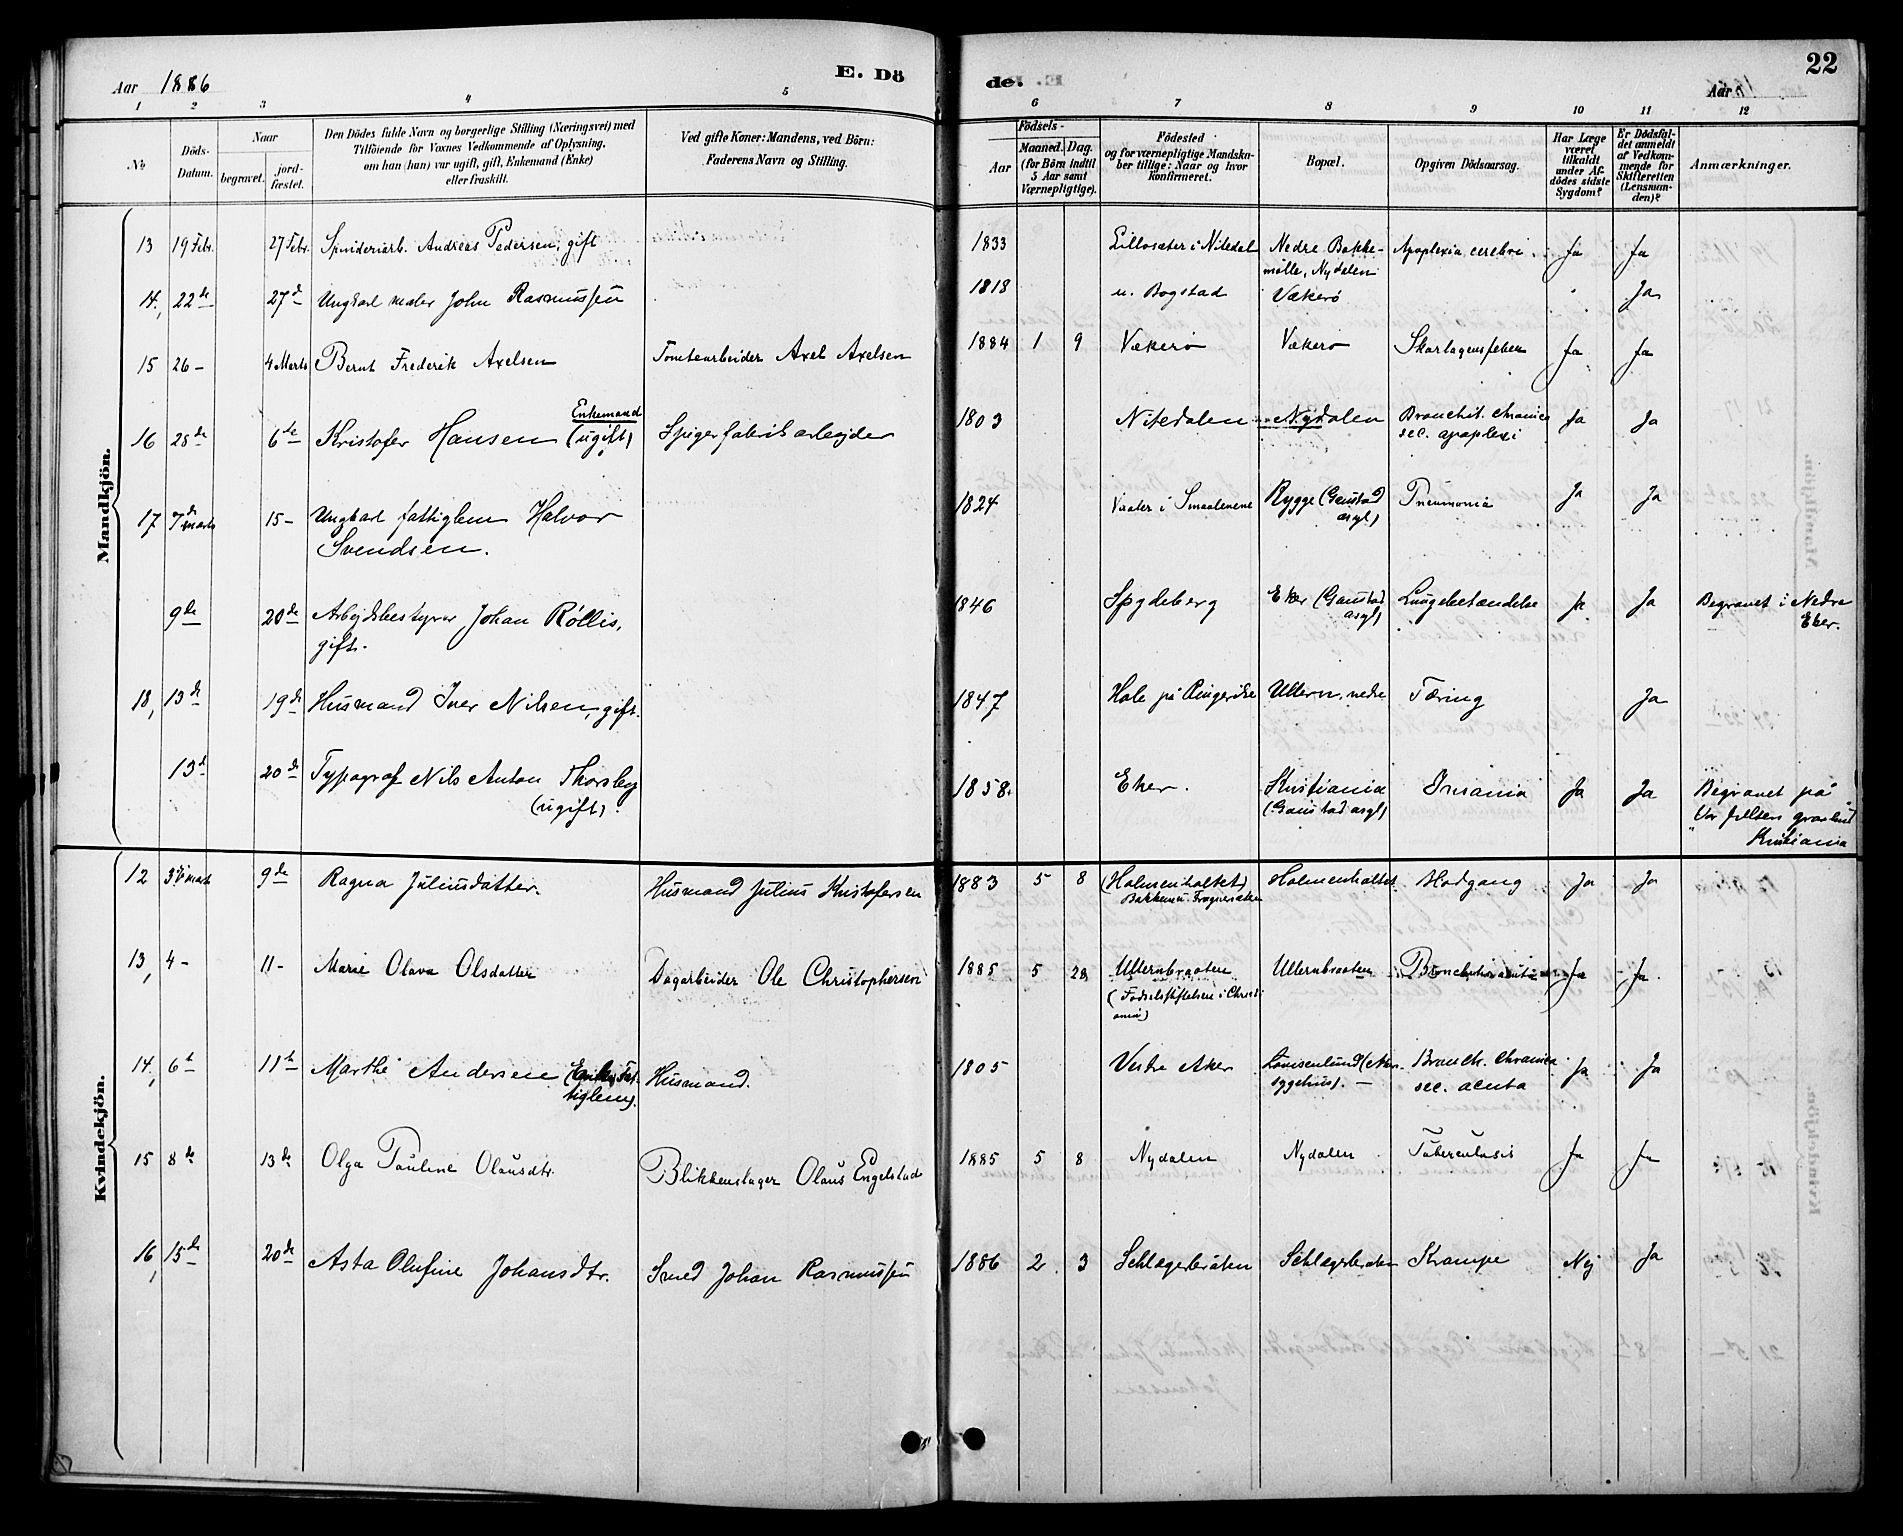 Aar 1886
E. Dö
de.
22
Aar
1 2 3 4 5 6 7 8 9 10 11 12
No
Döds-Datum.
Naar
begravet.
jord-fæstet.
Den Dödes fulde Navn og borgerlige Stilling (Næringsvei) med
Tilföiende for Voxnes Vedkommende af Oplysning,
om han (hun) var ugift, gift, Enkemand (Enke)
eller fraskilt.
Ved gifte Koner: Mandens, ved Börn:
Faderens Navn og Stilling.
Födsels-
Aar
Maaned. Dag.
(for Börn indtil
5 Aar samt
Værnepligtige).
Födested
og for værnepligtige Mandska-
ber tillige: Naar og hvor
Konfirmeret.
Bopæl.
Opgiven Dödsaarsag.
Har Læge
været
tilkaldt
under Af-
dödes sidste
Sygdom?
Er Dödsfal-
det anmeldt
af Vedkom-
mende for
Skifteretten
(Lensman-
den)?
Anmærkninger.
Mandkjön.
13 19 Febr. 27 Febr. Spinderiarb. Andreas Pedersen, gift 1833 Lillosæter i Nitedal Nedre Bakke- Apoplexia cerebri. Ja Ja
mølle, Nydalen
14, 22de 27de Ungkarl maler John Rasmussen 1818 u. Bogstad Vækerø Ja
15 26 – 4 Marts Bernt Frederik Axelsen Tomtearbeider Axel Axelsen 1884 1 9 Vækerø Vækerø Skarlagensfeber Ja Ja
Enkemand
16 28de 6te Kristofer Hansen (ugift) Spigerfabrikarbejder 1803 Nitedalen Nydalen Bronchit. chronica Ja Ja
sec. apoplexi
17 7de marts 15 – Ungkarl fattiglem Halvor 1824 Vaaler i Smaalenene Rygge (Gaustad Pneumonia Ja Ja
Svendsen. asyl)
9de 20de Arbejdsbestyrer Johan Röllis, 1846 Spydeberg Eker (Gaustad Lungebetændelse ja Ja Begravet i Nedre
gift. asyl) Eker.
18, 13de 19de Husmand Iver Nilsen, gift. 1847 Hole på Ringerike Ullern, nedre Tæring Ja
13de 20de Typograf Nils Anton Thorsby 1858. Eker. Kristiania Insania Ja Ja Begravet på
(ugift) (Gaustad asyl) Vor frelsers gravlund
Kristiania
Kvindekjön.
12 marts 9de Ragna Juliusdatter. Husmand Julius Kristofersen 1883 5 8 (Holmenholtet) Holmenholtet Modgang Ja Ja
13, 4 – 11 – Marie Olava Olsdatter Dagarbeider Ole Christophersen 1885 5 28 Ullernbraaten Ullernbraaten Ja Ja.
(Fødselsstiftelsen i Christi-
ania)
14, 6te 11te Marthe Andersen (Enke, fat- Husmand. 1805 Vestre Aker Louisenlund (Akers Bronch. chronica Ja Ja
tiglem). sygehus). – sec. acuta
15 8de 13de Olga Pauline Olausdtr. Blikkenslager Olaus Engelstad 1885 5 8 Nydalen Nydalen Tuberculosis Ja Ja
16, 15de 20de Asta Olufine Johansdtr. Smed Johan Rasmussen 1886 2 3 Schlægerbråten Schlægerbraten Krampe Nej Ja